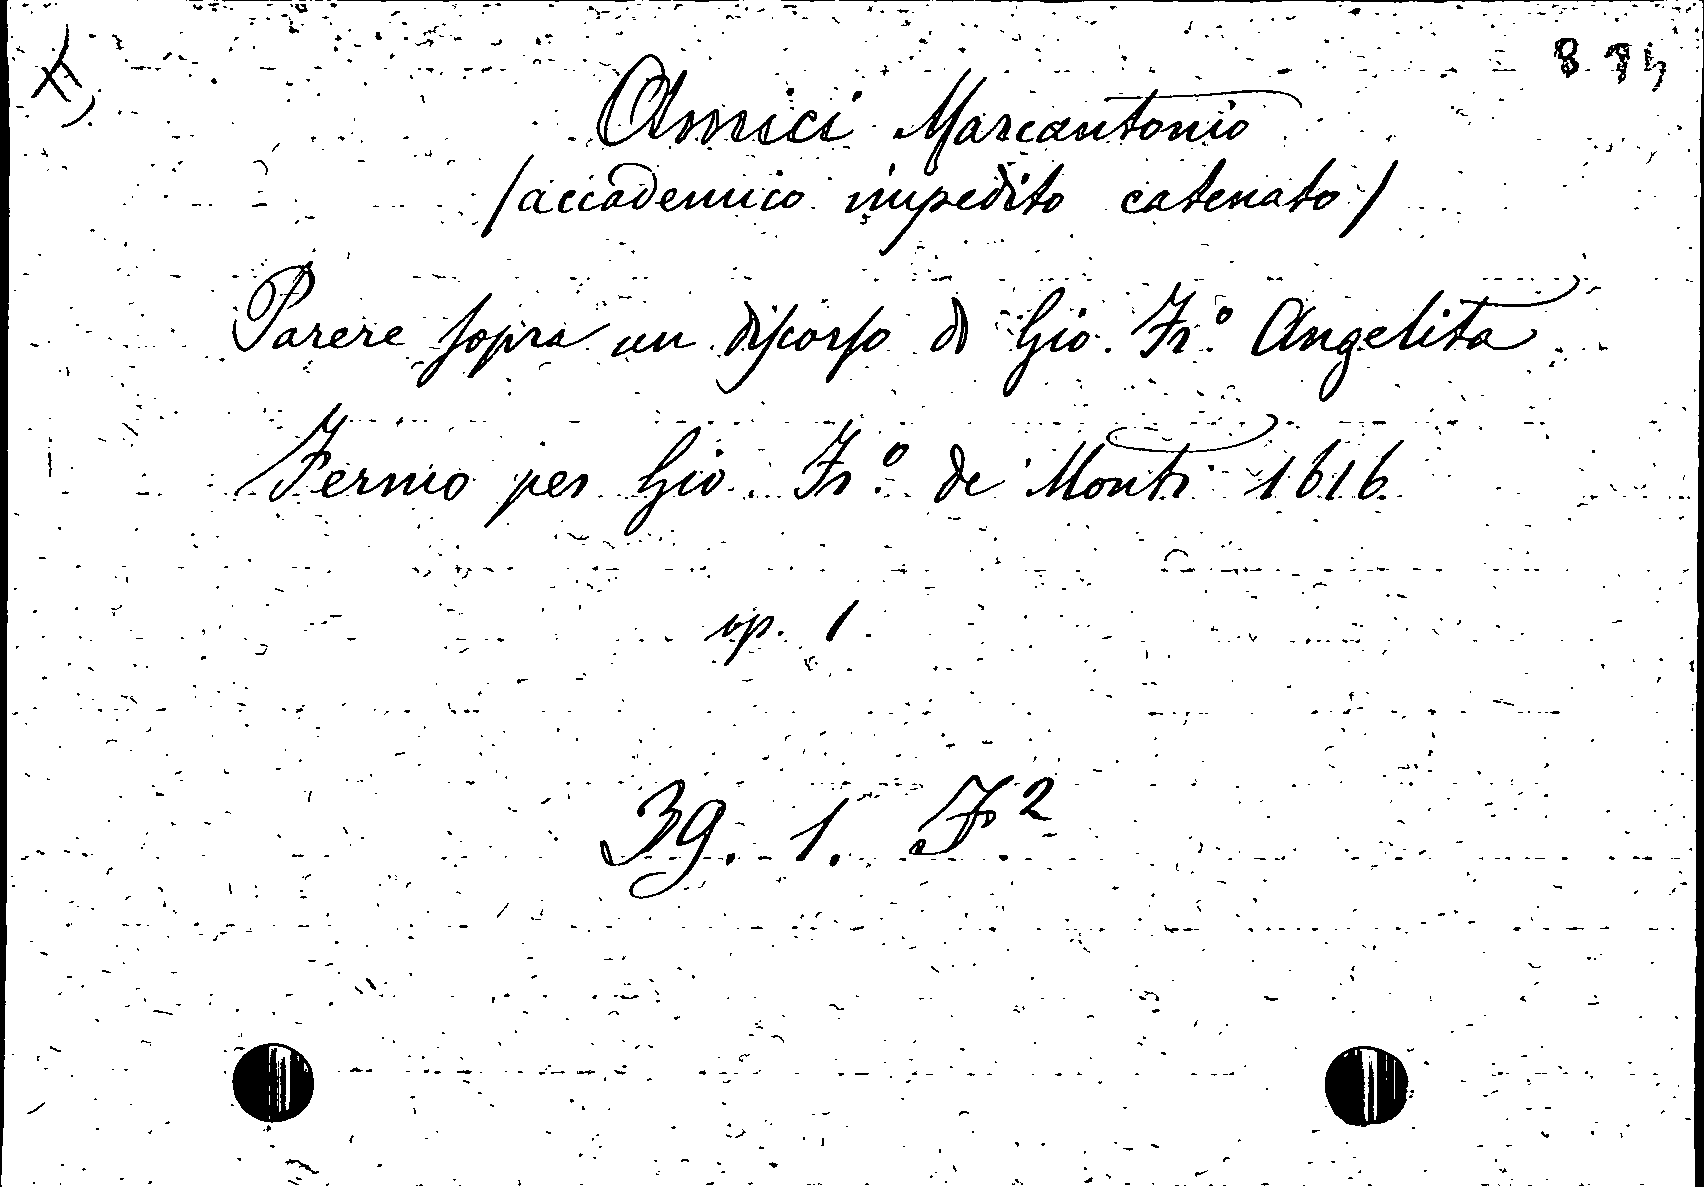 Amici Marcantonio
/accademico impedito catenato/
Parere sopra un discorso di Gio. Fr.º Angelita
Fermo per Gio. Fr.º de Monti 1616
op. 1
39. 1. F²